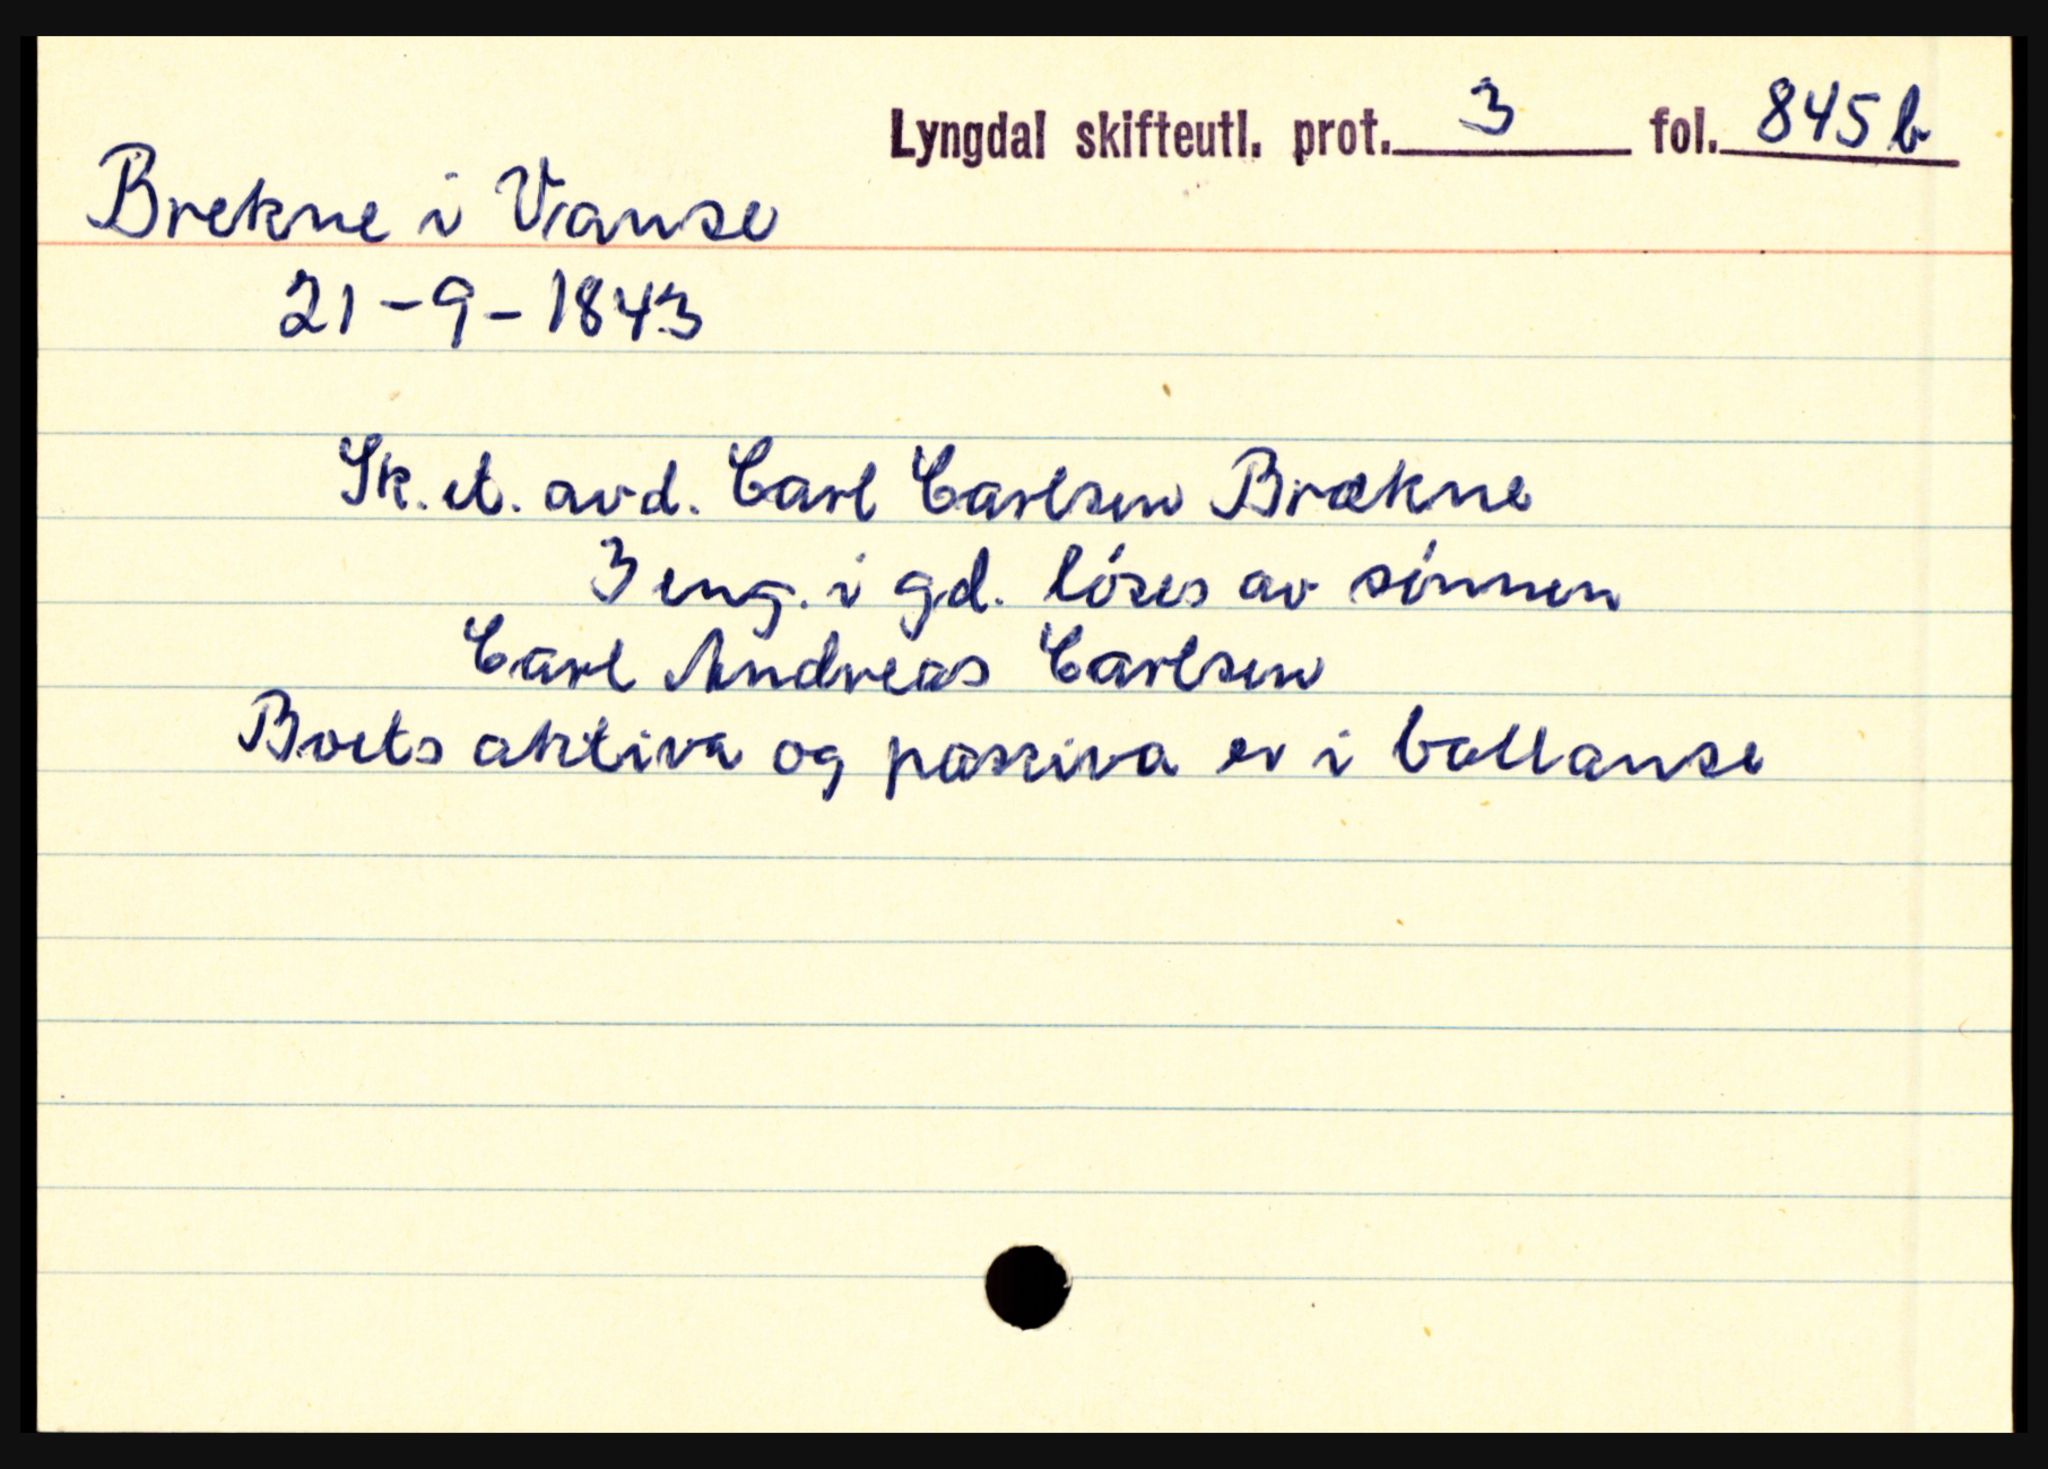 Lyngdal skifteutl. prot. 3 fol. 845 b
Brekne i Vanse
21-9-1843
Sk. et. avd. Carl Carlsen Brækne
3 eng. i gd. löses av sönnen
Carl Andreas Carlsen
Boets aktiva og passiva er i ballanse